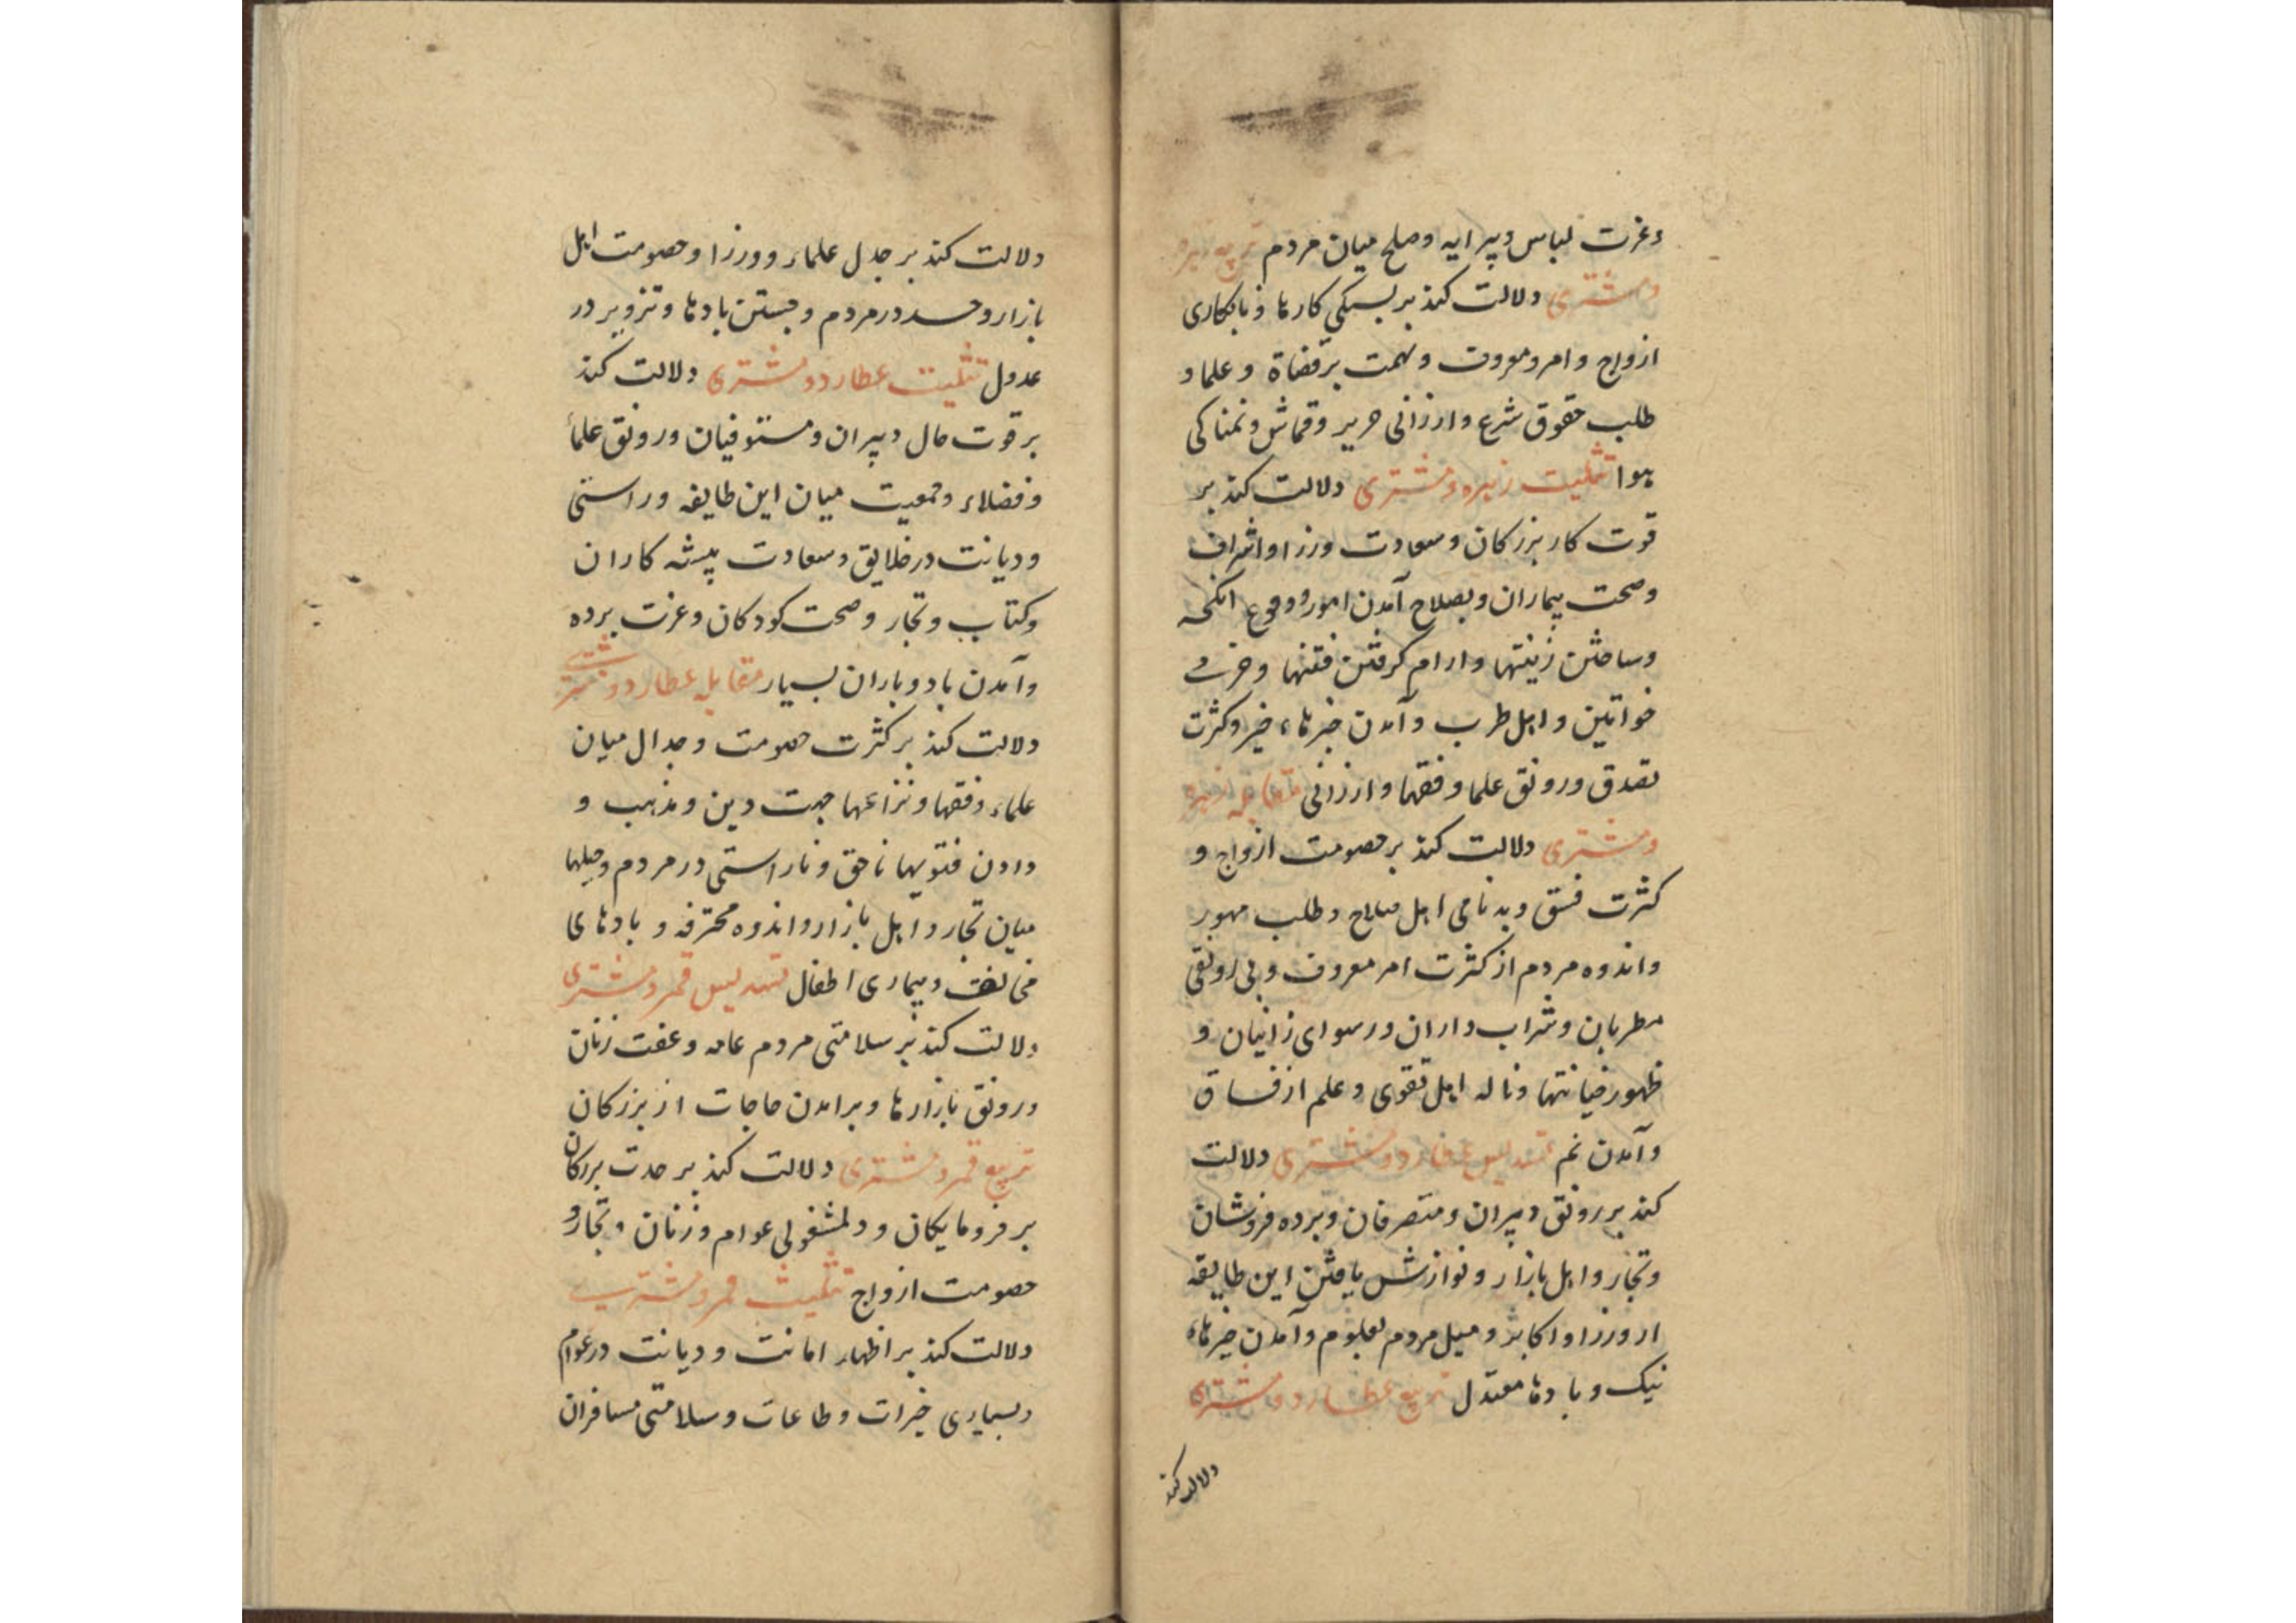 وعزت لباس و پیرایه و صلح میان مردم تربیع زهره
و مشتری دلالت کند بر بستکی کارها و نابکاری
ازواج و امر معروف و تهمت بر قضاة و علما و
طلب حقوق شرع و ارزانی حریر و قماش و نمناکی
هوا تثلیث زهره و مشتری دلالت کند بر
قوت کار بزرکان و سعادت وزرا و اشراف
و صحت بیماران و بصلاح آمدن امور و وقوع انکحه
و ساختن زینتها و ارام کرفتن فتنها و خرمی
خواتین و اهل طرب و آمدن خبرهاء خیر و کثرت
تصدق و رونق علما و فقها و ارزانی مقابله زهره
و مشتری دلالت کند بر خصومت ازواج و
کثرت فسق و بدنامی اهل صلاح و طلب مهور
و اندوه مردم از کثرت امر معروف و بی رونقی
مطربان و شراب داران و رسوای زانیان و
ظهور خیانتها و ناله اهل تقوی و علم از فساق
و آمدن نم تسدیس عطارد و مشتری دلالت
کند بر رونق دبیران و متصرفان و برده فروشان
و تجار و اهل بازار و نوازش یافتن این طایفه
از وزرا و اکابر و میل مردم بعلوم و آمدن خبرهاء
نیک و بادها معتدل تربیع عطارد و مشتری
دلالت کند
دلالت کند بر جدل علماء و وزرا و خصومت اهل
بازار و حسد در مردم و جستن بادها و تزویر در
عدول تثلیث عطارد و مشتری دلالت کند
بر قوت حال دبیران و مستوفیان و رونق علما
و فضلاء و جمعیت میان این طایفه و راستی
و دیانت در خلایق و سعادت پیشه کاران
و کتاب و تجار و صحت کودکان و عزت برده
و آمدن باد و باران بسیار مقابله عطارد و مشتری
دلالت کند بر کثرت خصومت و جدال میان
علماء و فقها و نزاعها جهت دین و مذهب و
دادن فتویها ناحق و ناراستی در مردم و حیلها
میان تجار و اهل بازار و اندوه محترفه و بادهای
مخالف و بیماری اطفال تسدیس قمر و مشتری
دلالت کند بر سلامتی مردم عامه و عفت زنان
و رونق بازارها و برامدن حاجات از بزرکان
تربیع قمر و مشتری دلالت کند بر حدت بزرکان
بر فرومایکان و دلمشغولی عوام و زنان و تجار و
خصومت ازواج تثلیث قمر و مشتری
دلالت کند بر اظهار امانت و دیانت در عوام
و بسیاری خیرات و طاعات و سلامتی مسافران